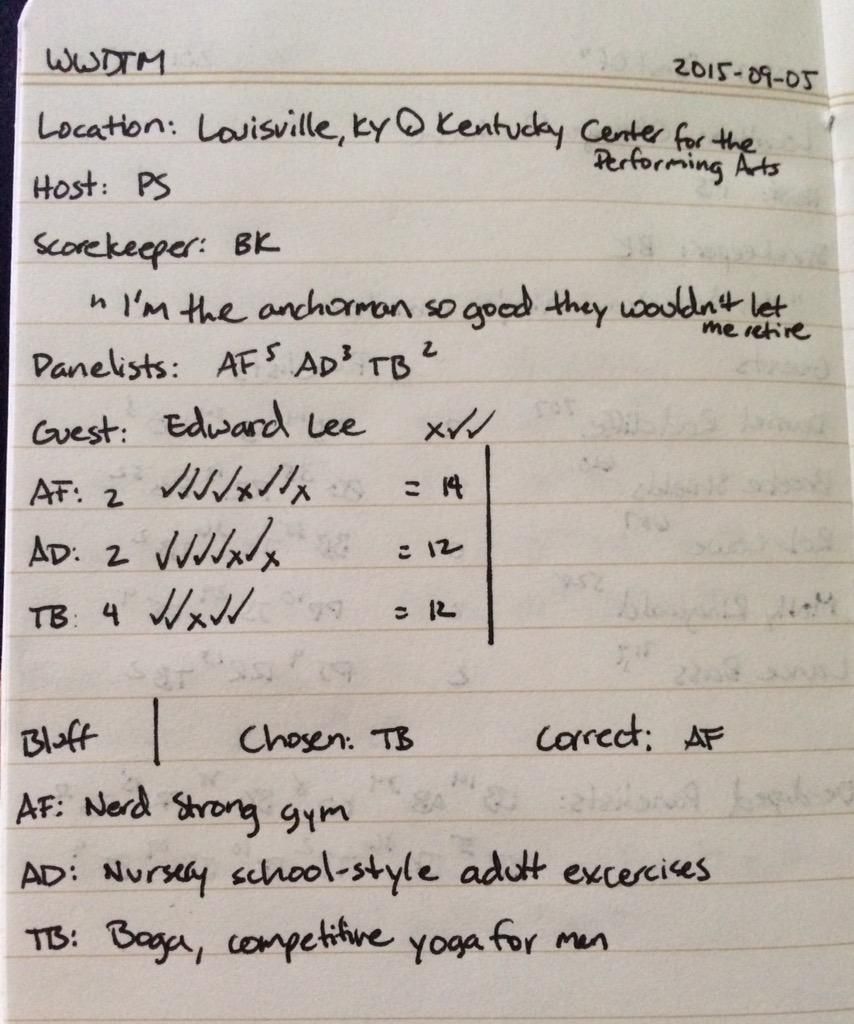 WWDTM 2015-09-05
Location: Louisville, KY @ Kentucky Center for the
Performing Arts
Host: PS
Scorekeeper: BK
" I'm the anchorman so good they wouldn't let
me retire
Panelists: AF⁵ AD³ TB²
Guest: Edward Lee x✓✓
AF: 2 ✓✓✓✓x✓✓x = 14
AD: 2 ✓✓✓✓x✓x = 12
TB: 4 ✓✓x✓✓ = 12
Bluff | Chosen: TB Correct: AF
AF: Nerd Strong gym
AD: Nursery school-style adult excercises
TB: Boga, competitive yoga for men